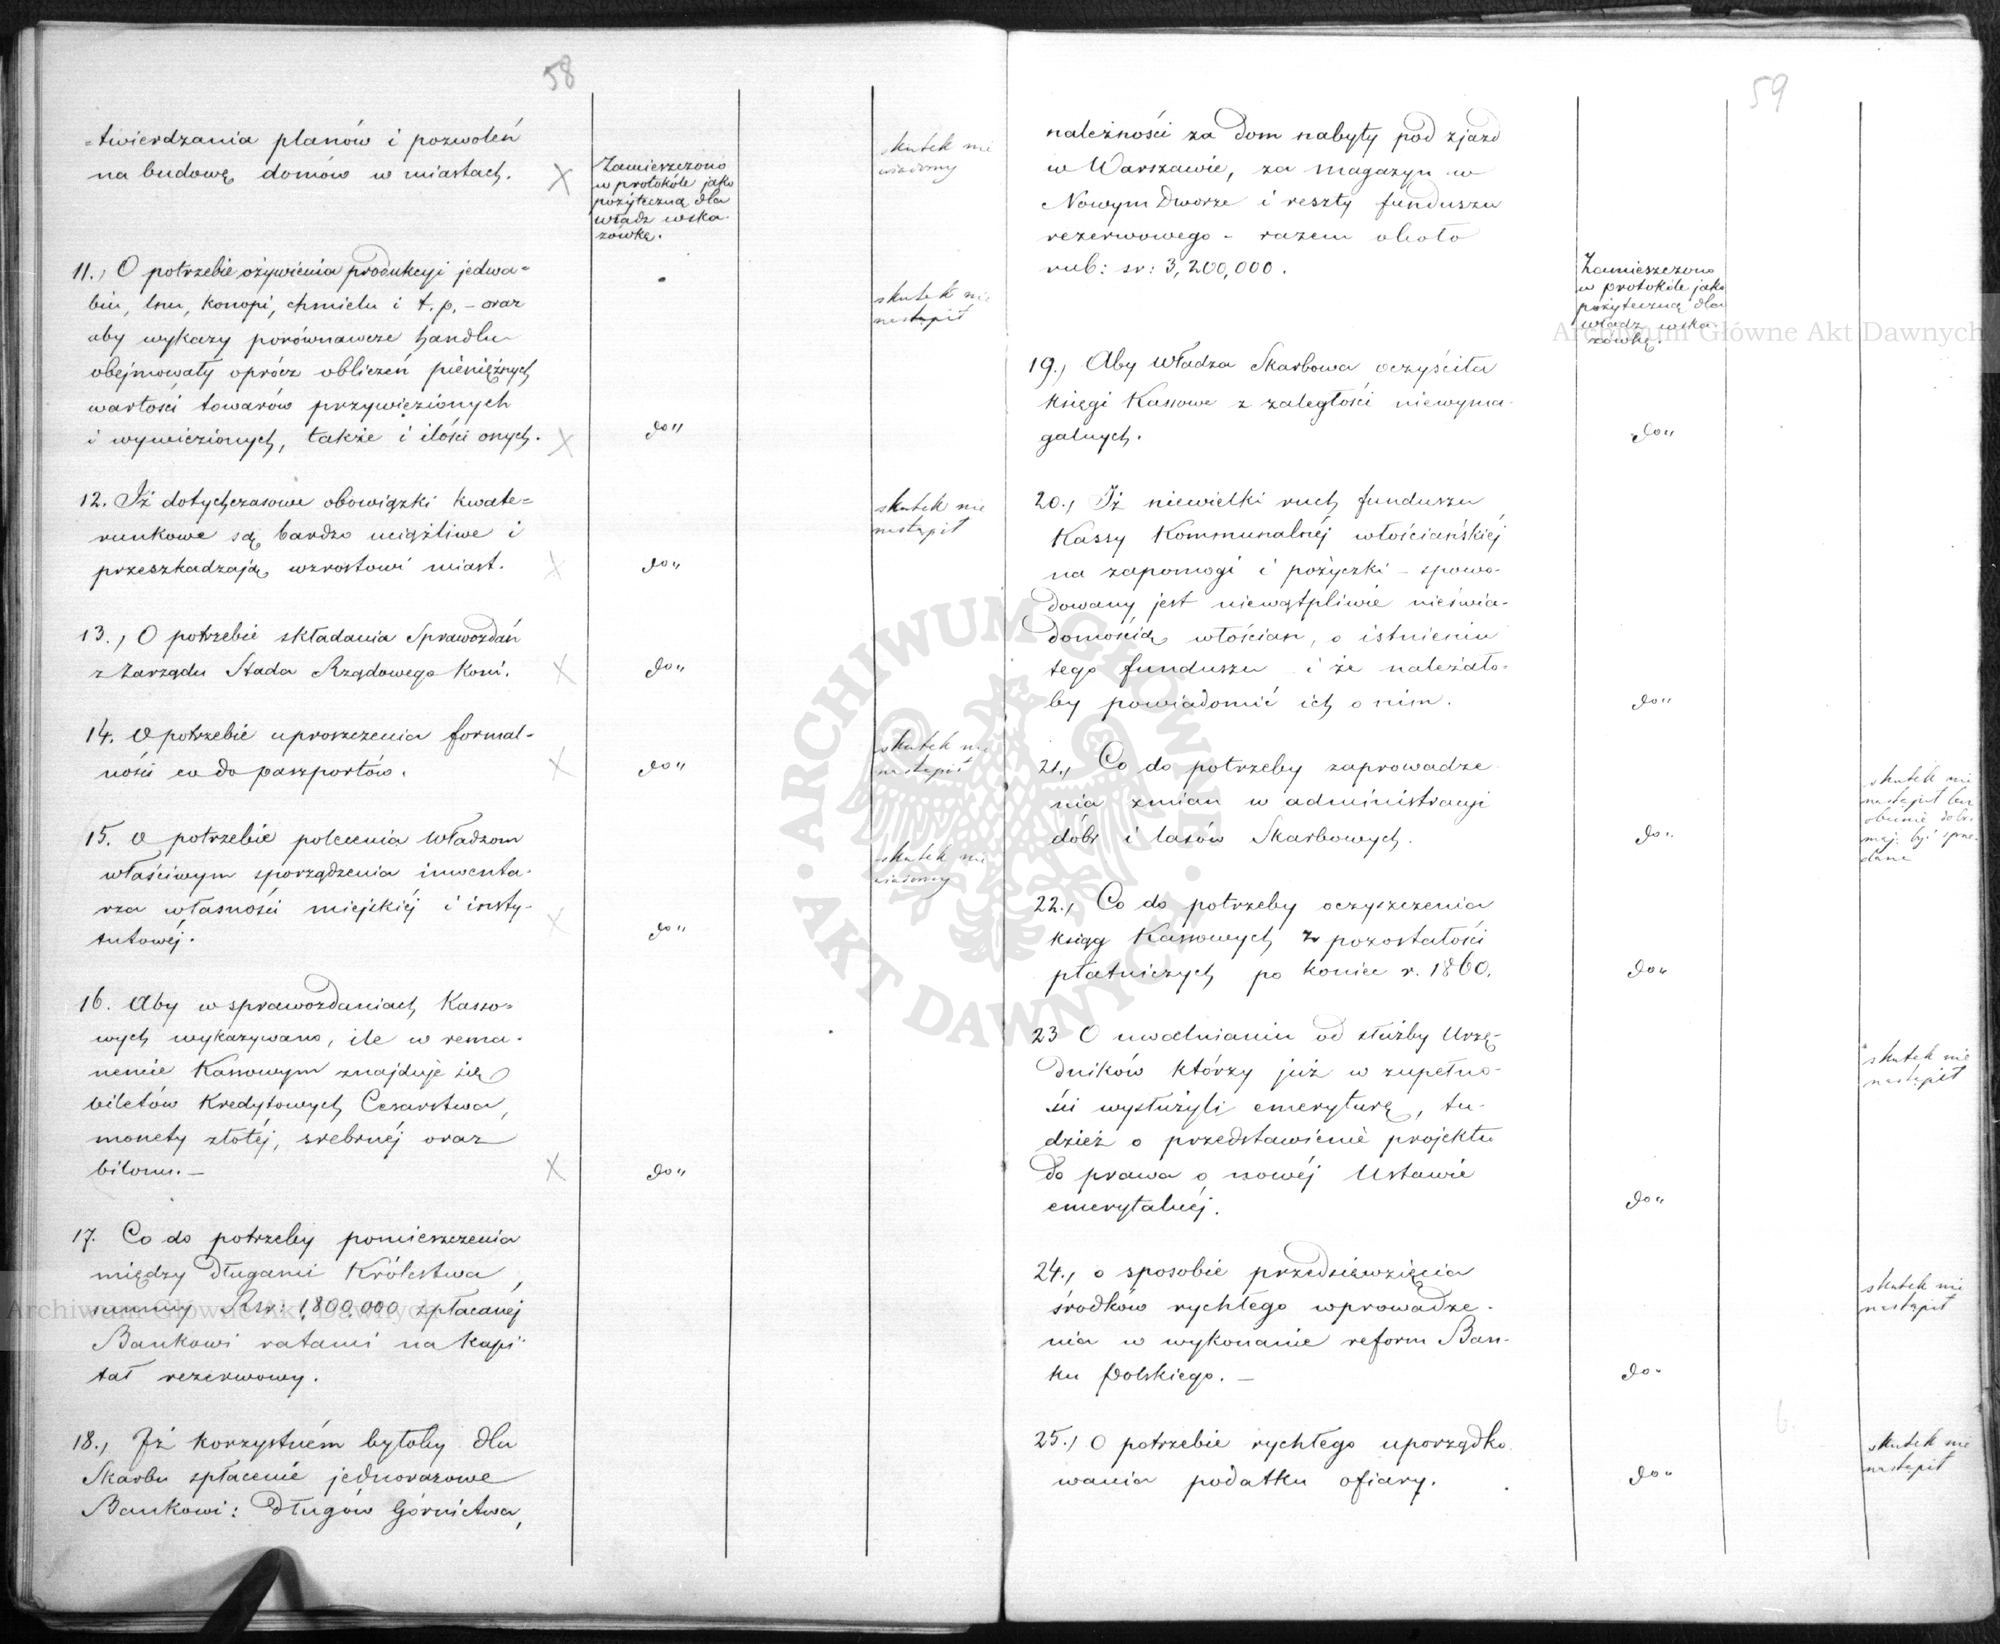 58
=twierdzania planów i pozwoleń
na budowę domów w miastach.
Zamieszczono
w protokóle jako
pożyteczną dla
władz wska-
zówkę.
skutek nie
wiadomy
11., O potrzebie ożywienia produkcyi jedwa=
biu, lnu, konopi, chmielu i t. p. – oraz
aby wykazy porównawcze handlu
obejmowały oprócz obliczeń pieniężnych
wartości towarów przywiezionych
i wywiezionych, także i ilości onych.
do"
skutek nie
nastąpił
12. Iż dotychczasowe obowiązki kwate=
runkowe są bardzo uciążliwe i
przeszkadzają wzrostowi miast.
do"
skutek nie
nastąpił
13., O potrzebie składania Sprawozdań
z Zarządu Stada Rządowego Koni.
do"
14. O potrzebie uproszczenia formal-
ności co do paszportów.
do"
skutek nie
nastąpił
15. O potrzebie polecenia Władzom
właściwym sporządzenia inwenta-
rza własności miejskiéj i insty-
tutowéj.
do"
skutek nie
wiadomy
16. Aby w sprawozdaniach Kasso-
wych wykazywano, ile w rema-
nencie Kassowym znajduje się
biletów Kredytowych Cesarstwa,
monety złotéj, srebrnéj oraz
bilonu. –
do"
17. Co do potrzeby pomieszczenia
między długami Królestwa,
summy Rsr: 1,800,000 spłacanéj
Bankowi ratami na Kapi-
tał rezerwowy.
18., Iż korzystném byłoby dla
Skarbu spłacenie jednorazowe
Bankowi: Długów Górnictwa,
59
należności za dom nabyty pod zjazd
w Warszawie, za magazyn w
Nowym Dworze i reszty funduszu
rezerwowego – razem około
rub: sr: 3,200,000.
Zamieszczono
w protokóle jako
pożyteczną dla
władz wska-
zówkę.
19., Aby Władza Skarbowa oczyściła
księgi Kassowe z zaległości niewyma-
galnych.
do"
20., Iż niewielki ruch funduszu
Kassy Kommunalnéj włościańskiéj
na zapomogi i pożyczki – spowo-
dowany jest niewątpliwie nieświa-
domością włościan, o istnieniu
tego funduszu i że należało-
by powiadomić ich o nim.
do"
21., Co do potrzeby zaprowadze-
nia zmian w administracyi
dóbr i lasów Skarbowych.
do"
skutek nie
nastąpił bo
obecnie dobra
mają być sprze-
dane
22., Co do potrzeby oczyszczenia
ksiąg Kassowych z pozostałości
płatniczych po koniec r. 1860.
do"
23 O uwalnianiu od służby Urzę-
dników którzy już w zupełno-
ści wysłużyli emeryturę, tu-
dzież o przedstawienie projektu
do prawa o nowéj Ustawie
emerytalnéj.
do"
skutek nie
nastąpił
24., o sposobie przedsięwzięcia
środków rychłego wprowadze-
nia w wykonanie reform Ban-
ku Polskiego. –
do"
skutek nie
nastąpił
25., O potrzebie rychłego uporządko-
wania podatku ofiary.
do"
skutek nie
nastąpił
ARCHIWUM GŁÓWNE
AKT DAWNYCH
Archiwum Główne Akt Dawnych
Archiwum Główne Akt Dawnych